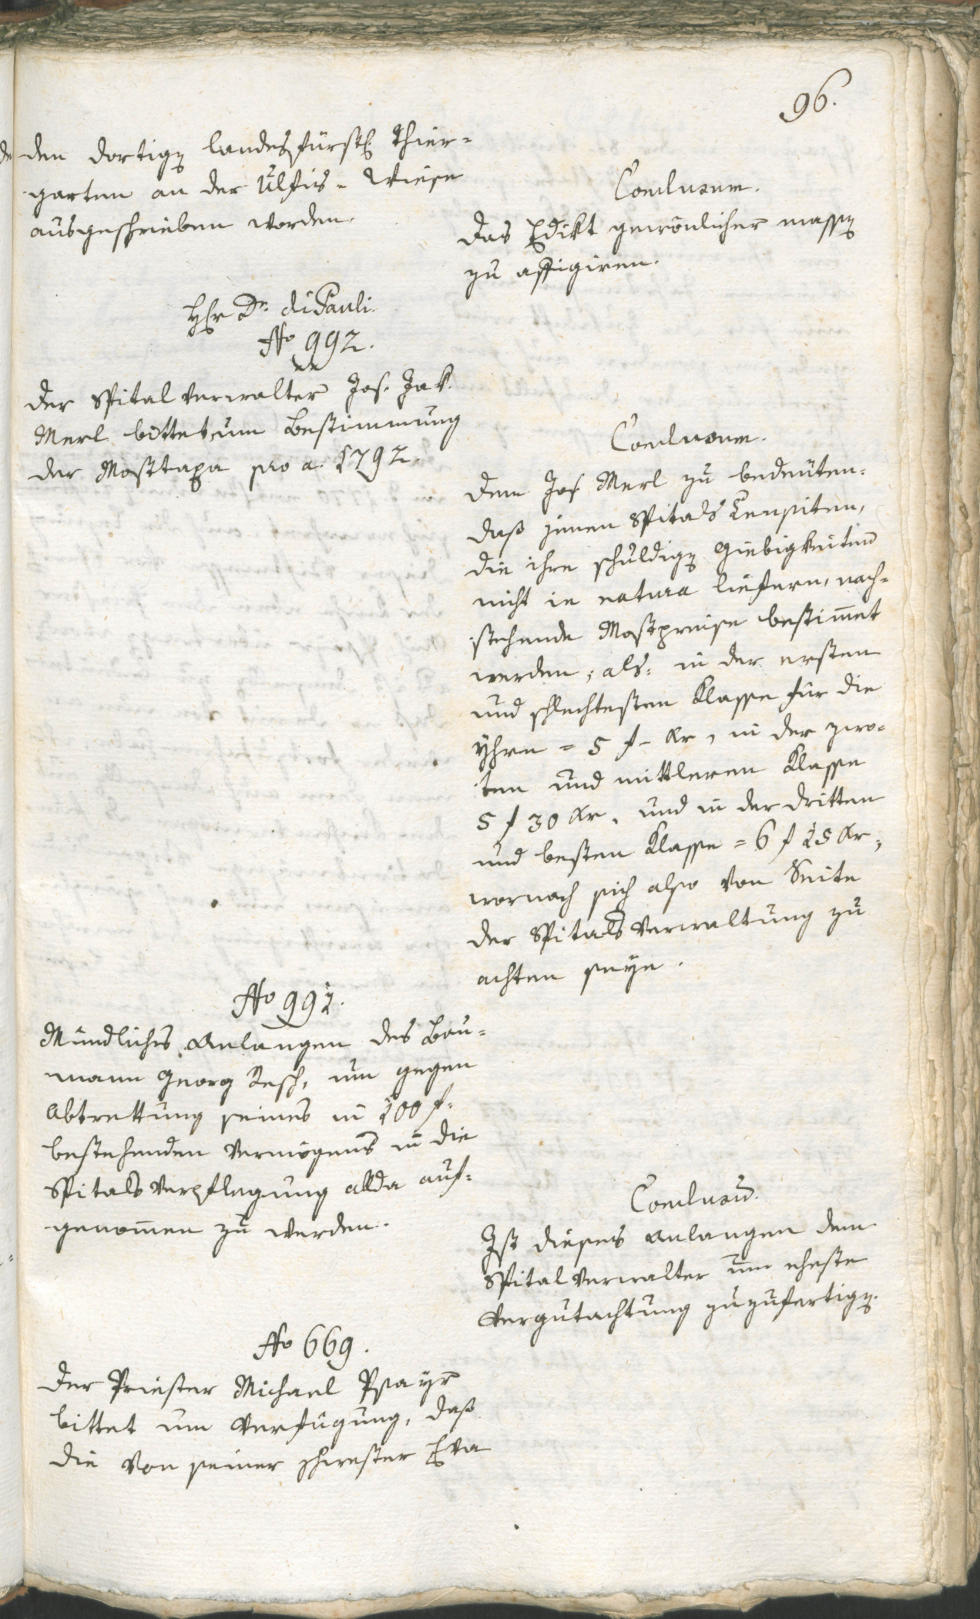 96.
den dortigen landesfürstl Thier-
garten an der Ulfis-Wiese
ausgeschrieben worden.
Conclusum.
Das Edikt gewönlicher massen
zu affigiren.
Hr Dr. di Pauli.
No 992.
Der Spitalverwalter Jos. Jak.
Merl bittet um Bestimmung
der Mosttaxa pro a. 1792.
Conclusum.
Dem Jos Merl zu bedeuten:
daß jenen Spitals Censiten,
die ihre schuldigen Giebigkeiten
nicht in natura liefern, nach-
stehende Mostpreise bestimmet
werden, als: in der ersten
und schlechtesten Klasse für die
Yhrn = 5 f - kr, in der zwo-
ten und mittleren Klasse
5 f 30 kr, und in der dritten
und besten Klasse = 6 f 15 kr,
wornach sich also von Seite
der Spitals Verwaltung zu
achten seye.
No 991.
Mündliches Anlangen des Bau-
mann Georg Resch, um gegen
Abtrettung seines in 100 f.
bestehenden Vermögens in die
Spitals Verpflegung allda auf-
genommen zu werden.
Conclusum.
Ist dieses Anlangen dem
Spitalverwalter um eheste
Vergutachtung zuzufertigen.
No 669.
Der Priester Michael
bittet um Verfügung, daß
die von seiner Schwester Eva